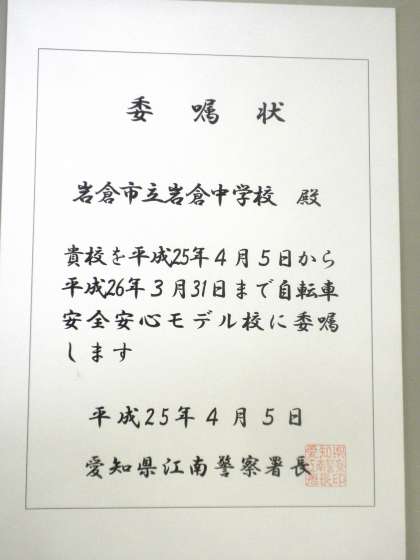 委嘱状
岩倉市立岩倉中学校 殿
貴校を平成25年４月５日から
平成26年３月31日まで自転車
安全安心モデル校に委嘱
します
平成25年４月５日
愛知県江南警察署長